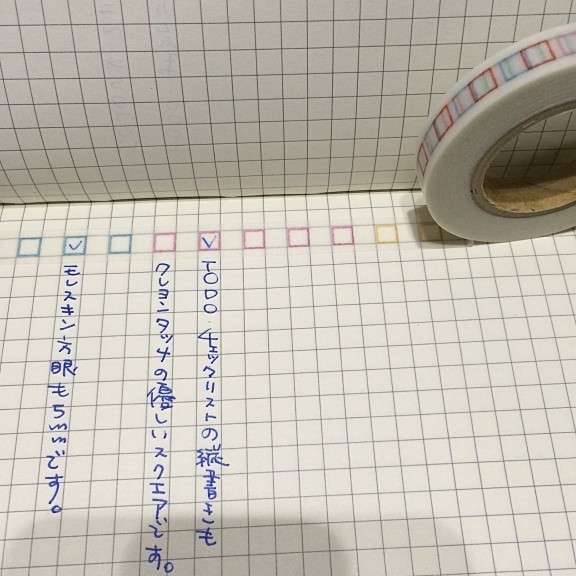 TODO チェックリストの縦書きも
クレヨンタッチの優しいスクエアです。
モレスキン方眼も5mmです。